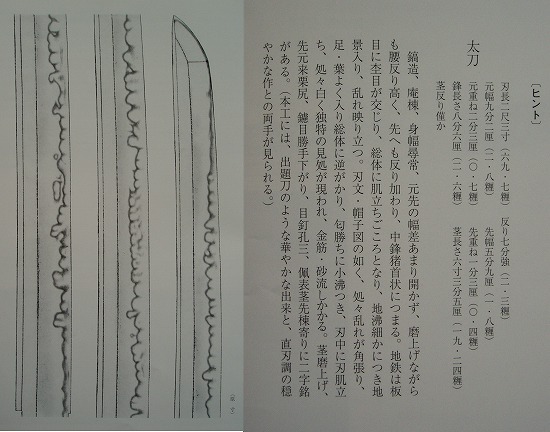 〔ヒント〕
太刀
刃長二尺三寸(六九・七糎) 反り七分強(二・三糎)
元幅九分二厘(二・八糎) 先幅五分九厘(一・八糎)
元重ね二分三厘(〇・七糎) 先重ね一分三厘(〇・四糎)
鋒長さ八分六厘(二・六糎) 茎長さ六寸三分五厘(一九・二四糎)
茎反り僅か
鎬造、庵棟、身幅尋常、元先の幅差あまり開かず、磨上げながら
も腰反り高く、先へも反り加わり、中鋒猪首状につまる。地鉄は板
目に杢目が交じり、総体に肌立ちごころとなり、地沸細かにつき地
景入り、乱れ映り立つ。刃文・帽子図の如く、処々乱れが角張り、
足・葉よく入り総体に逆がかり、匂勝ちに小沸つき、刃中に刃肌立
ち、処々白く独特の見処が現われ、金筋・砂流しかかる。茎磨上げ、
先元来栗尻、鑢目勝手下がり、目釘孔三、佩表茎先棟寄りに二字銘
がある。(本工には、出題刀のような華やかな出来と、直刃調の穏
やかな作との両手が見られる。)